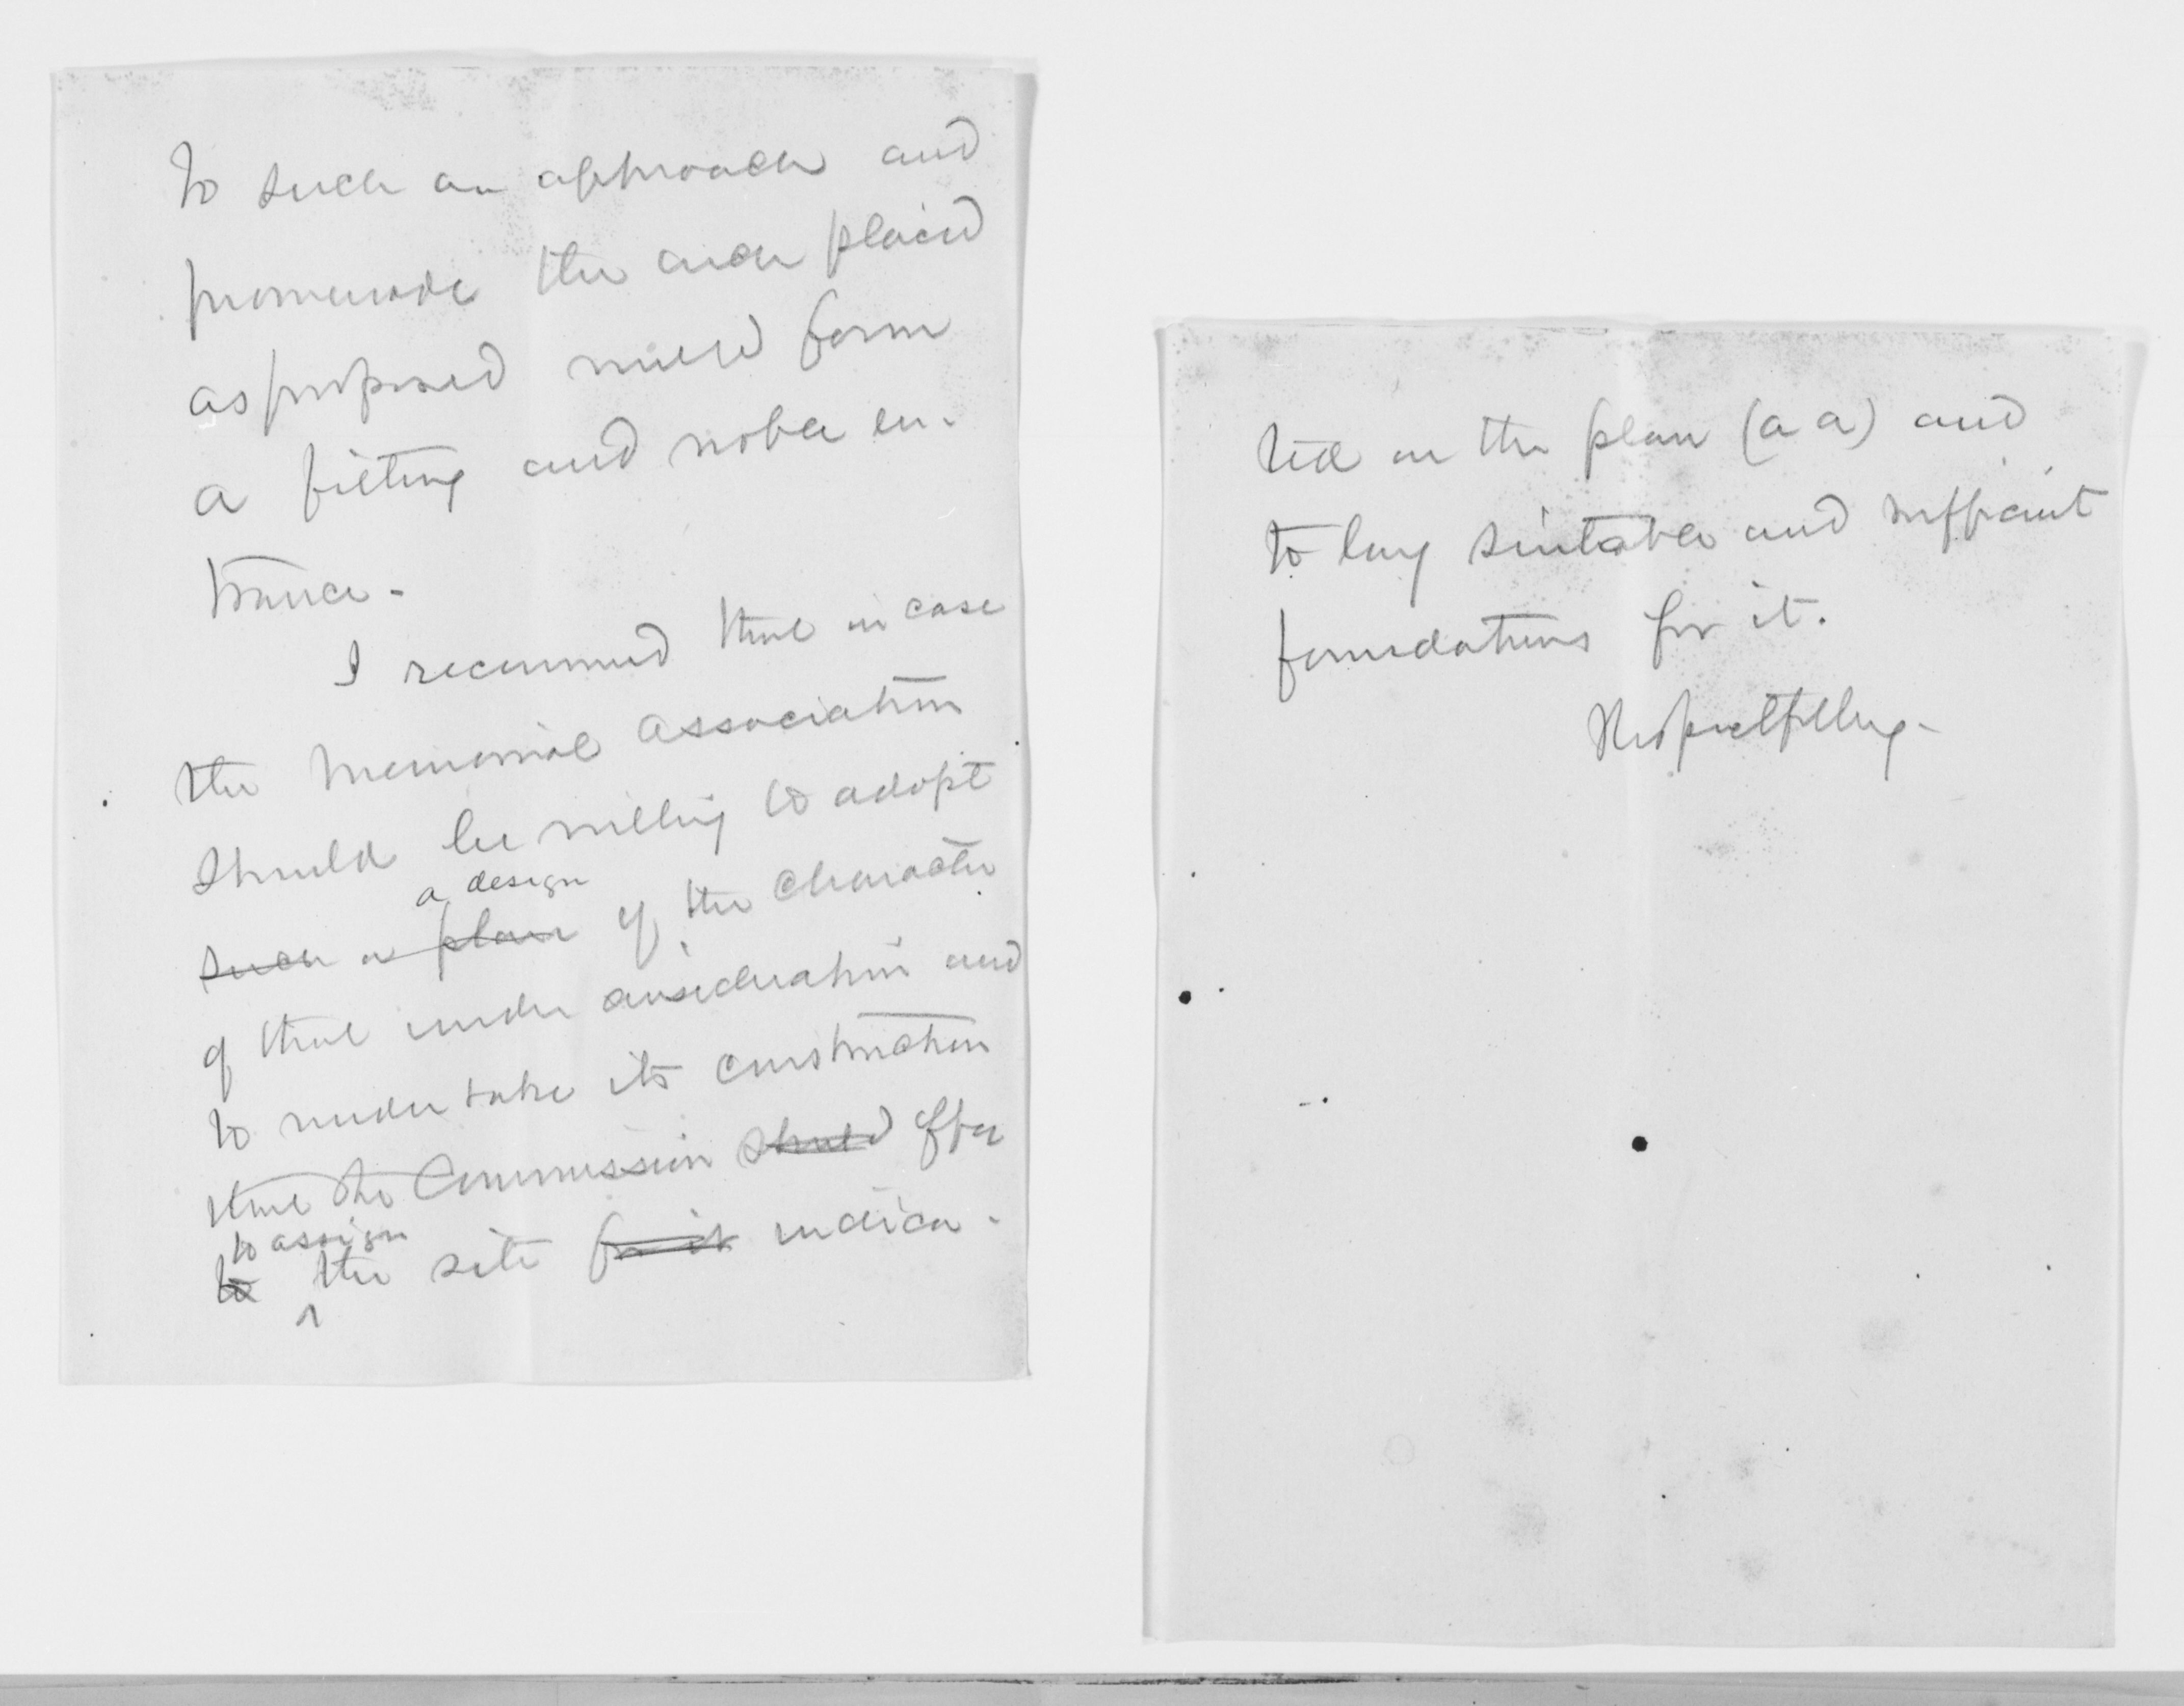 to such an approach and
promenade the arch placed
as proposed would form
a fitting and noble en-
trance.
I recommend that in case
the Memorial Association
should be willing to adopt
a design
such a plan of the character
of that under consideration and
to undertake its construction
that the Commission should offer
to assign
to the site for it indica-
ted on the plan (a a) and
to lay suitable and sufficient
foundations for it.
Respectfully-